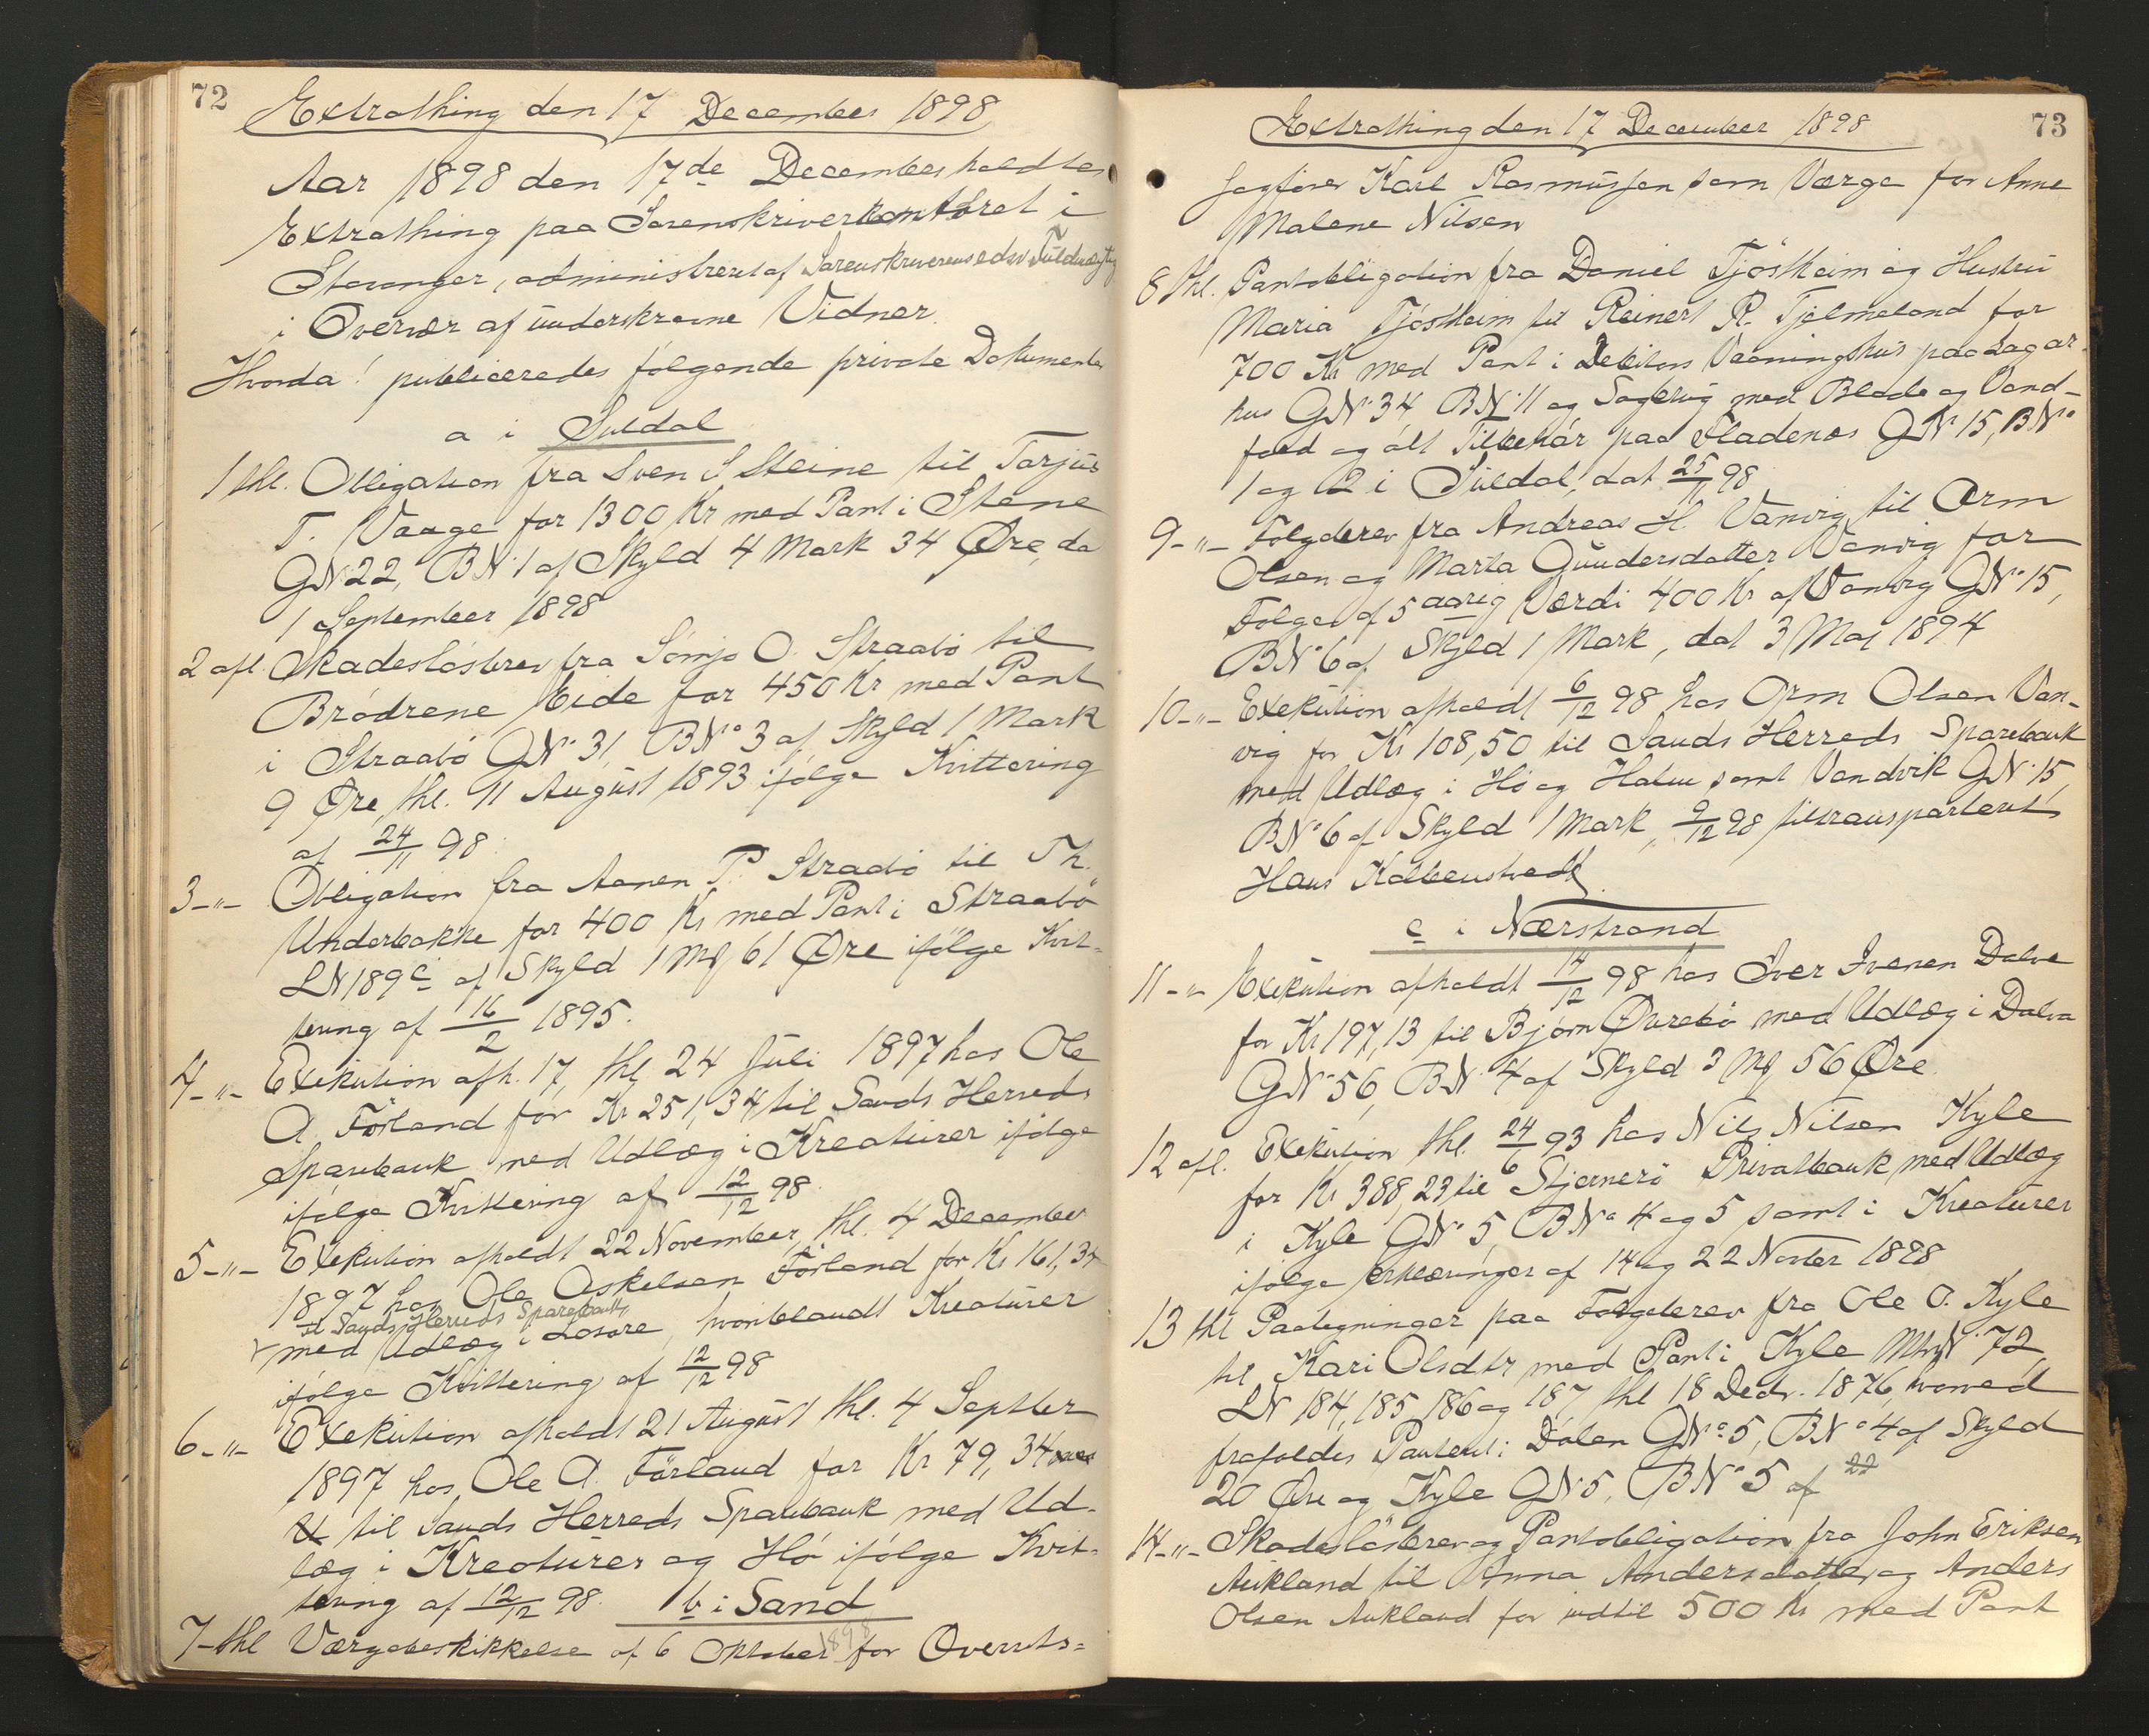 72
Extrathing den 17 December 1898
Aar 1898 den 17de December holdtes
Extrathing paa Sorenskriverkontoret i
Stavanger, administreret af Sorenskriverens edsv Fuldmægtig
i Overvær af underskrevne Vidner.
Hvorda! publiceredes følgende private Dokumenter
a i Suldal
1 thl. Obligation fra Sven S Steine til Tarjus
T. Vaage for 1300 Kr med Pant i Stene
GN. 22, BN. 1 af Skyld 4 Mark 34 Øre, da
1 September 1898
2 afl. Skadesløsbrev fra Sømje O. Straabø til
Brødrene Eide for 450 Kr med Pant
i Straabø GN. 31, BNo 3 af Skyld 1 Mark
9 Øre, thl. 11 August 1893 ifølge Kvittering
af 24/11 98.
3 -"- Obligation fra Aanen P. Strabø til Th.
Underbakke for 400 Kr med Pant i Straabø
LN 189c af Skyld 1 M 61 Øre ifølge Kvit-
tering af 16/2 1895.
4 -"- Exekution afh. 17, thl. 24 Juli 1897 hos Ole
A. Førland for Kr 251,34 til Sands Herreds
Sparebank med Udlæg i Kreaturer ifølge
ifølge Kvittering af 12/12 98.
5 -"- Exekution afholdt 22 November, thl. 4 December
1897 hos Ole Askelsen Førland for Kr 161,34
til Sands Herreds Sparebank
med Udlæg i Løsøre, hvoriblandt Kreaturer
ifølge Kvittering af 12/12 98
6 -"- Exekution afholdt 21 August thl. 4 Septber
1897 hos Ole A. Førland for Kr 79,34
til Sands Herreds Sparebank med Ud-
læg i Kreaturer og Hø ifølge Kvit-
tering af 12/12 98.
b i Sand
7 - thl Værgebeskikkelse af 6 Oktober 1898 for Overrets-
73
Extrathing den 17 December 1898
sagfører Karl Rasmussen som Værge for Anne
Malene Nilsen
8 thl. Pantobligation fra Daniel Tjøstheim og Hustru
Maria Tjøstheim til Reinert R. Tjelmeland for
700 Kr med Pant i Debitors Vaaningshus paa Lagar-
hus GN. 34 BN. 11 og Sagbrug med Blade og Vand-
fald og alt Tilbehør paa Fladenæs GN. 15, BNo
1 og 12 i Suldal, dat 25/11 98
9 -"- Følgebrev fra Andreas H. Vanvig til Orm
Olsen og Marta Gundersdatter Vanvig for
Følge af 5 aarig Værdi 400 Kr af Vanvig GNo 15,
BNo 6 af Skyld 1 Mark, dat 3 Maj 1894
10 -"- Exekution afholdt 6/12 98 hos Orm Olsen Van-
vig for Kr 108,50 til Sands Herreds Sparebank
med Udlæg i Hø og Halm samt Vandvik GN. 15,
BNo 6 af Skyld 1 Mark, 9/12 98 tiltransporteret
Hans Kolbenstvedt
c i Nærstrand
11 -"- Exekution afholdt 14/12 98 hos Iver Ivesen Dalva
for Kr 197,13 til Bjørn Øvrebø med Udlæg i Dalva
GN. 56, BN. 4 af Skyld 3 M 56 Øre.
12 afl. Exekution thl. 24/6 93 hos Nils Nilsen Kyle
for Kr 388,23 til Stjernerø Privatbank med Udlæg
i Kyle GNo 5, BNo 4 og 5 samt i Kreaturer
ifølge Erklæringer af 14 og 22 Novber 1898
13 thl Paategninger paa Følgebrev fra Ole O. Kyle
til Kari Olsdtr med Pant i Kyle MtrN. 72,
LN 184, 185, 186 og 187 thl 18 Decbr. 1876, hvorved
frafaldes Panteret i Dølen GNo 5, BNo 4 af Skyld
20 Øre og Kyle GN 5, BNo 5 af 22
14 -"- Skadesløsbrev og Pantobligation fra John Eriksen
Aukland til Anna Andersdatter og Anders
Olsen Aukland for indtil 500 Kr med Pant